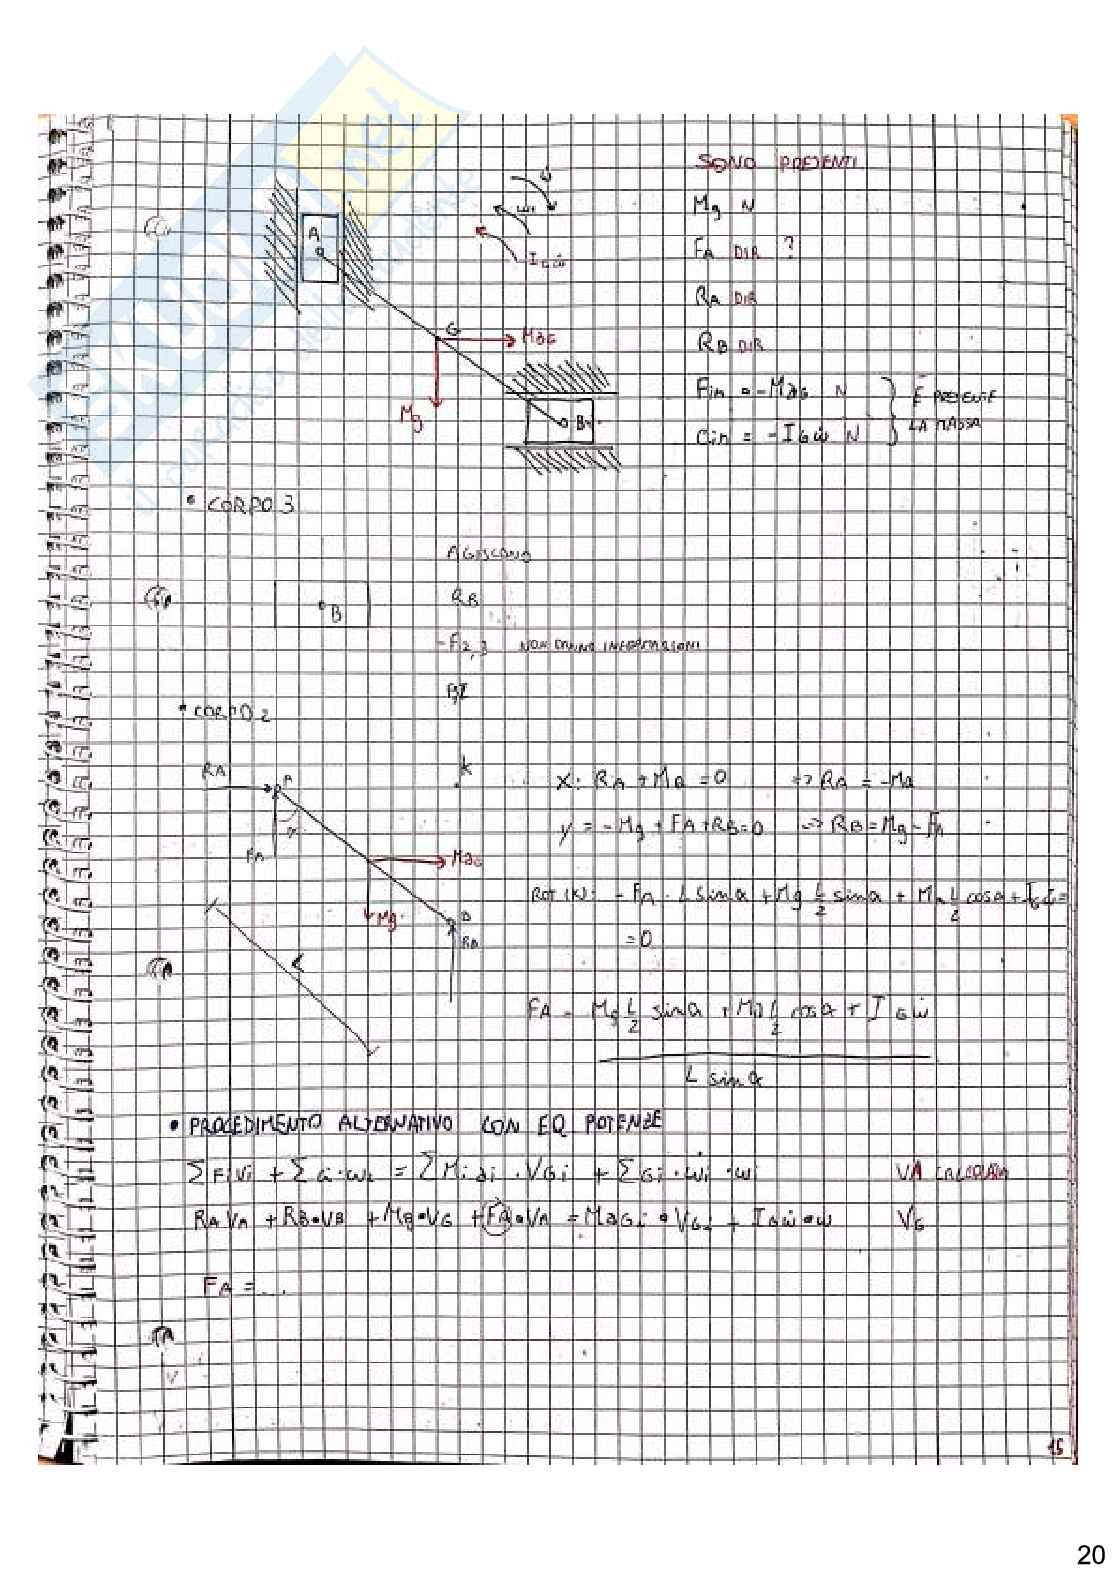 SONO PRESENTI
Mg N
FA DIR ?
RA DIR
RB DIR
Fin = -MaG N
Cin = -IGω̇ N
È PRESENTE
LA MASSA
A
G
MaG
Mg
B
IGω̇
• CORPO 3
AGISCONO
B
RB
-F2,3 NON DANNO INFORMAZIONI
• CORPO 2
RA
A
K
FA
MaG
Mg
B
RB
L
X: RA + Ma = 0 => RA = -Ma
y = -Mg + FA + RB = 0 => RB = Mg - FA
ROT (K): - FA · L sinα + Mg L/2 sinα + Ma L/2 cosα + IGω̇ =
= 0
FA = Mg L/2 sinα + Ma L/2 cosα + IGω̇
L sinα
• PROCEDIMENTO ALTERNATIVO CON EQ POTENZE
ΣFiVi + ΣCi·ωi = ΣMiai · VGi + ΣGi · ω̇i · ωi VA CALCOLATA
RA VA + RB·VB + Mg·VG + FA·VA = MaGi · VGi + IGω̇·ω VG
FA = ...
15
20